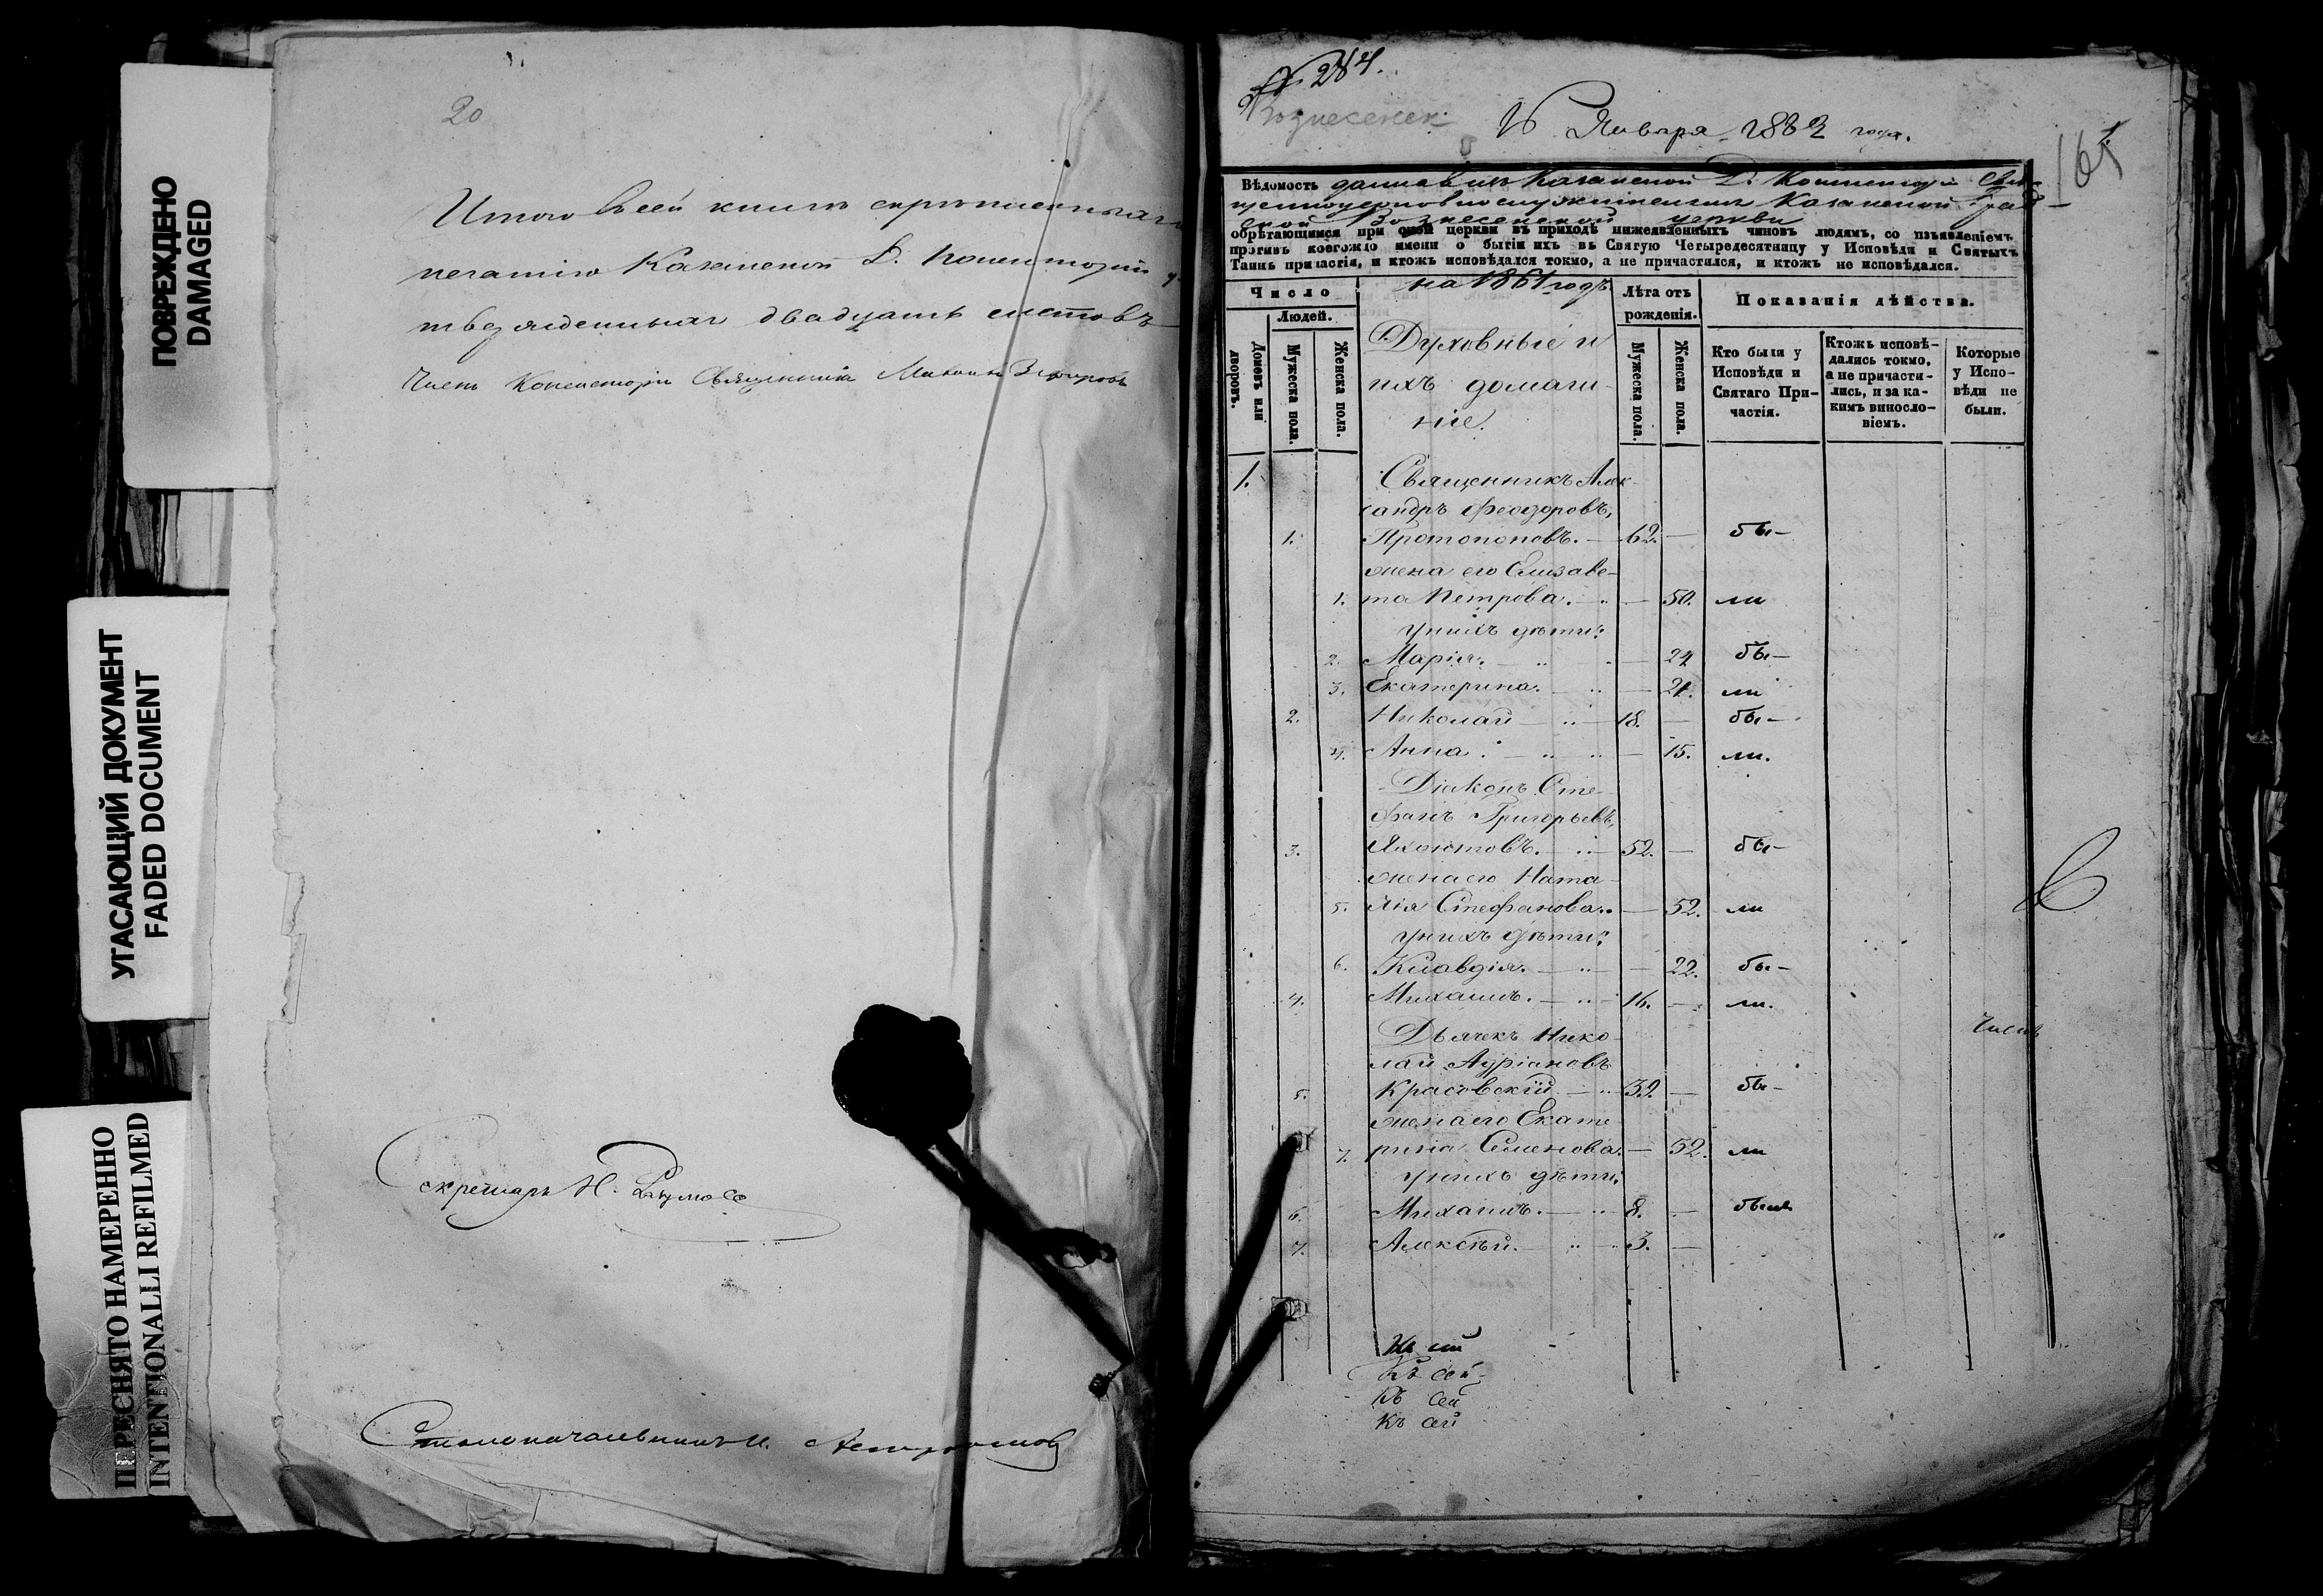 ПОВРЕЖДЕНО
DAMAGED
УГАСАЮЩИЙ ДОКУМЕНТ
FADED DOCUMENT
ПЕРЕСНЯТО НАМЕРЕННО
INTENTIONALLI REFILMED
20
Итого всей книгѣ скрѣпленныхъ
печатію Казанской Д. Консисторіи у-
твержденныхъ двадцать листовъ
Членъ Консисторіи Священникъ
Секретарь Н.
Столоначальникъ
№ 284.
Вознесенск
16 Января 1862 года.
161
1.
Вѣдомость данная изъ Казанской Д. Консисторіи Свя-
щенноцерковнослужителямъ Казанской Град-
ской Вознесенской церкви
обрѣтающимся при оной церкви въ приходѣ нижеявленныхъ чиновъ людямъ, со изъявленіемъ
противъ коегождо имени о бытіи ихъ въ Святую Четыредесятницу у Исповѣди и Святыхъ
Таинъ причастія, и ктожъ исповѣдался токмо, а не причастился, и ктожъ не исповѣдался.
на 1861 годъ
Число
Людей.
Домовъ или дворовъ.
Мужеска пола.
Женска пола.
Духовные и
ихъ домаш-
ніе.
Лѣта отъ рожденія.
Мужеска пола.
Женска пола.
Показанія дѣйства.
Кто были у Исповѣди и Святаго Причастія.
Ктожъ исповѣдались токмо, а не причастились, и за какимъ винословіемъ.
Которые у Исповѣди не были.
1. Священникъ Алек-
сандръ Феодоровъ,
1. Протопоповъ. 62. — бы-
жена его Елизаве-
1. та Петрова. — 50. ли
у нихъ дѣти:
2. Марія. — 24 бы-
3. Екатерина. — 21. ли
2. Николай — 18. — бы-
4. Анна. — 15. ли.
Діаконъ Сте-
фанъ Григорьевъ,
3. Яхонтовъ. — 52. — бы-
жена его Ната-
5. лія Стефанова. — 52. ли
у нихъ дѣти:
6. Клавдія. — 22. бы-
4. Михаилъ. — 16. — ли.
Дьячекъ Нико-
лай Адріановъ
5. Красовскій — 32. — бы-
жена его Екате-
7. рина Семенова. — 52. ли
у нихъ дѣти:
6. Михаилъ. — 8. — были
7. Алексѣй. — 3. —
Членъ
Къ сей
Къ сей
Къ сей